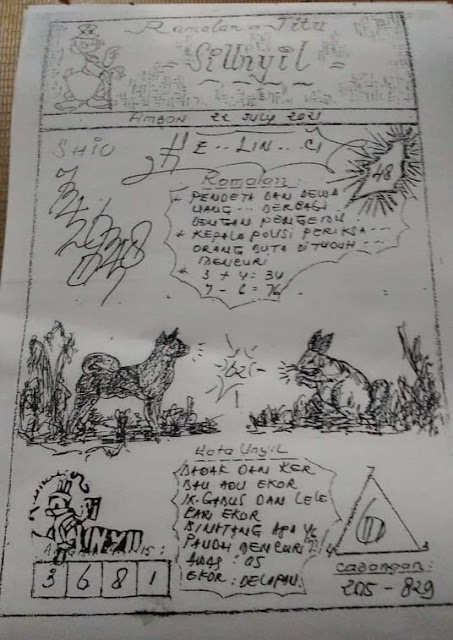 Ramalan Jitu
SiUnyil
AMBON 22 JULY 2021
SHIO
KE..LIN..CI
48
Ramalan:
* PENDETA DAN DEWA
UANG --- BERBAGI
DENGAN PENGEMIS
* KEPALA POLISI PERIKSA ---
ORANG BUTA DITUDUH ---
MENCURI
* 3 + 4 = 34
7 - 6 = 76
Kata Unyil
BADAK DAN KER
BAU ADU EKOR
IK. GABUS DAN LELE
CARI EKOR
BINATANG APA YG
PANDAI MENCURI?!!
AWAS : 05
EKOR : DELAPAN
UNYIL
3 6 8 1
7
6
3
Cabangan:
205 - 829